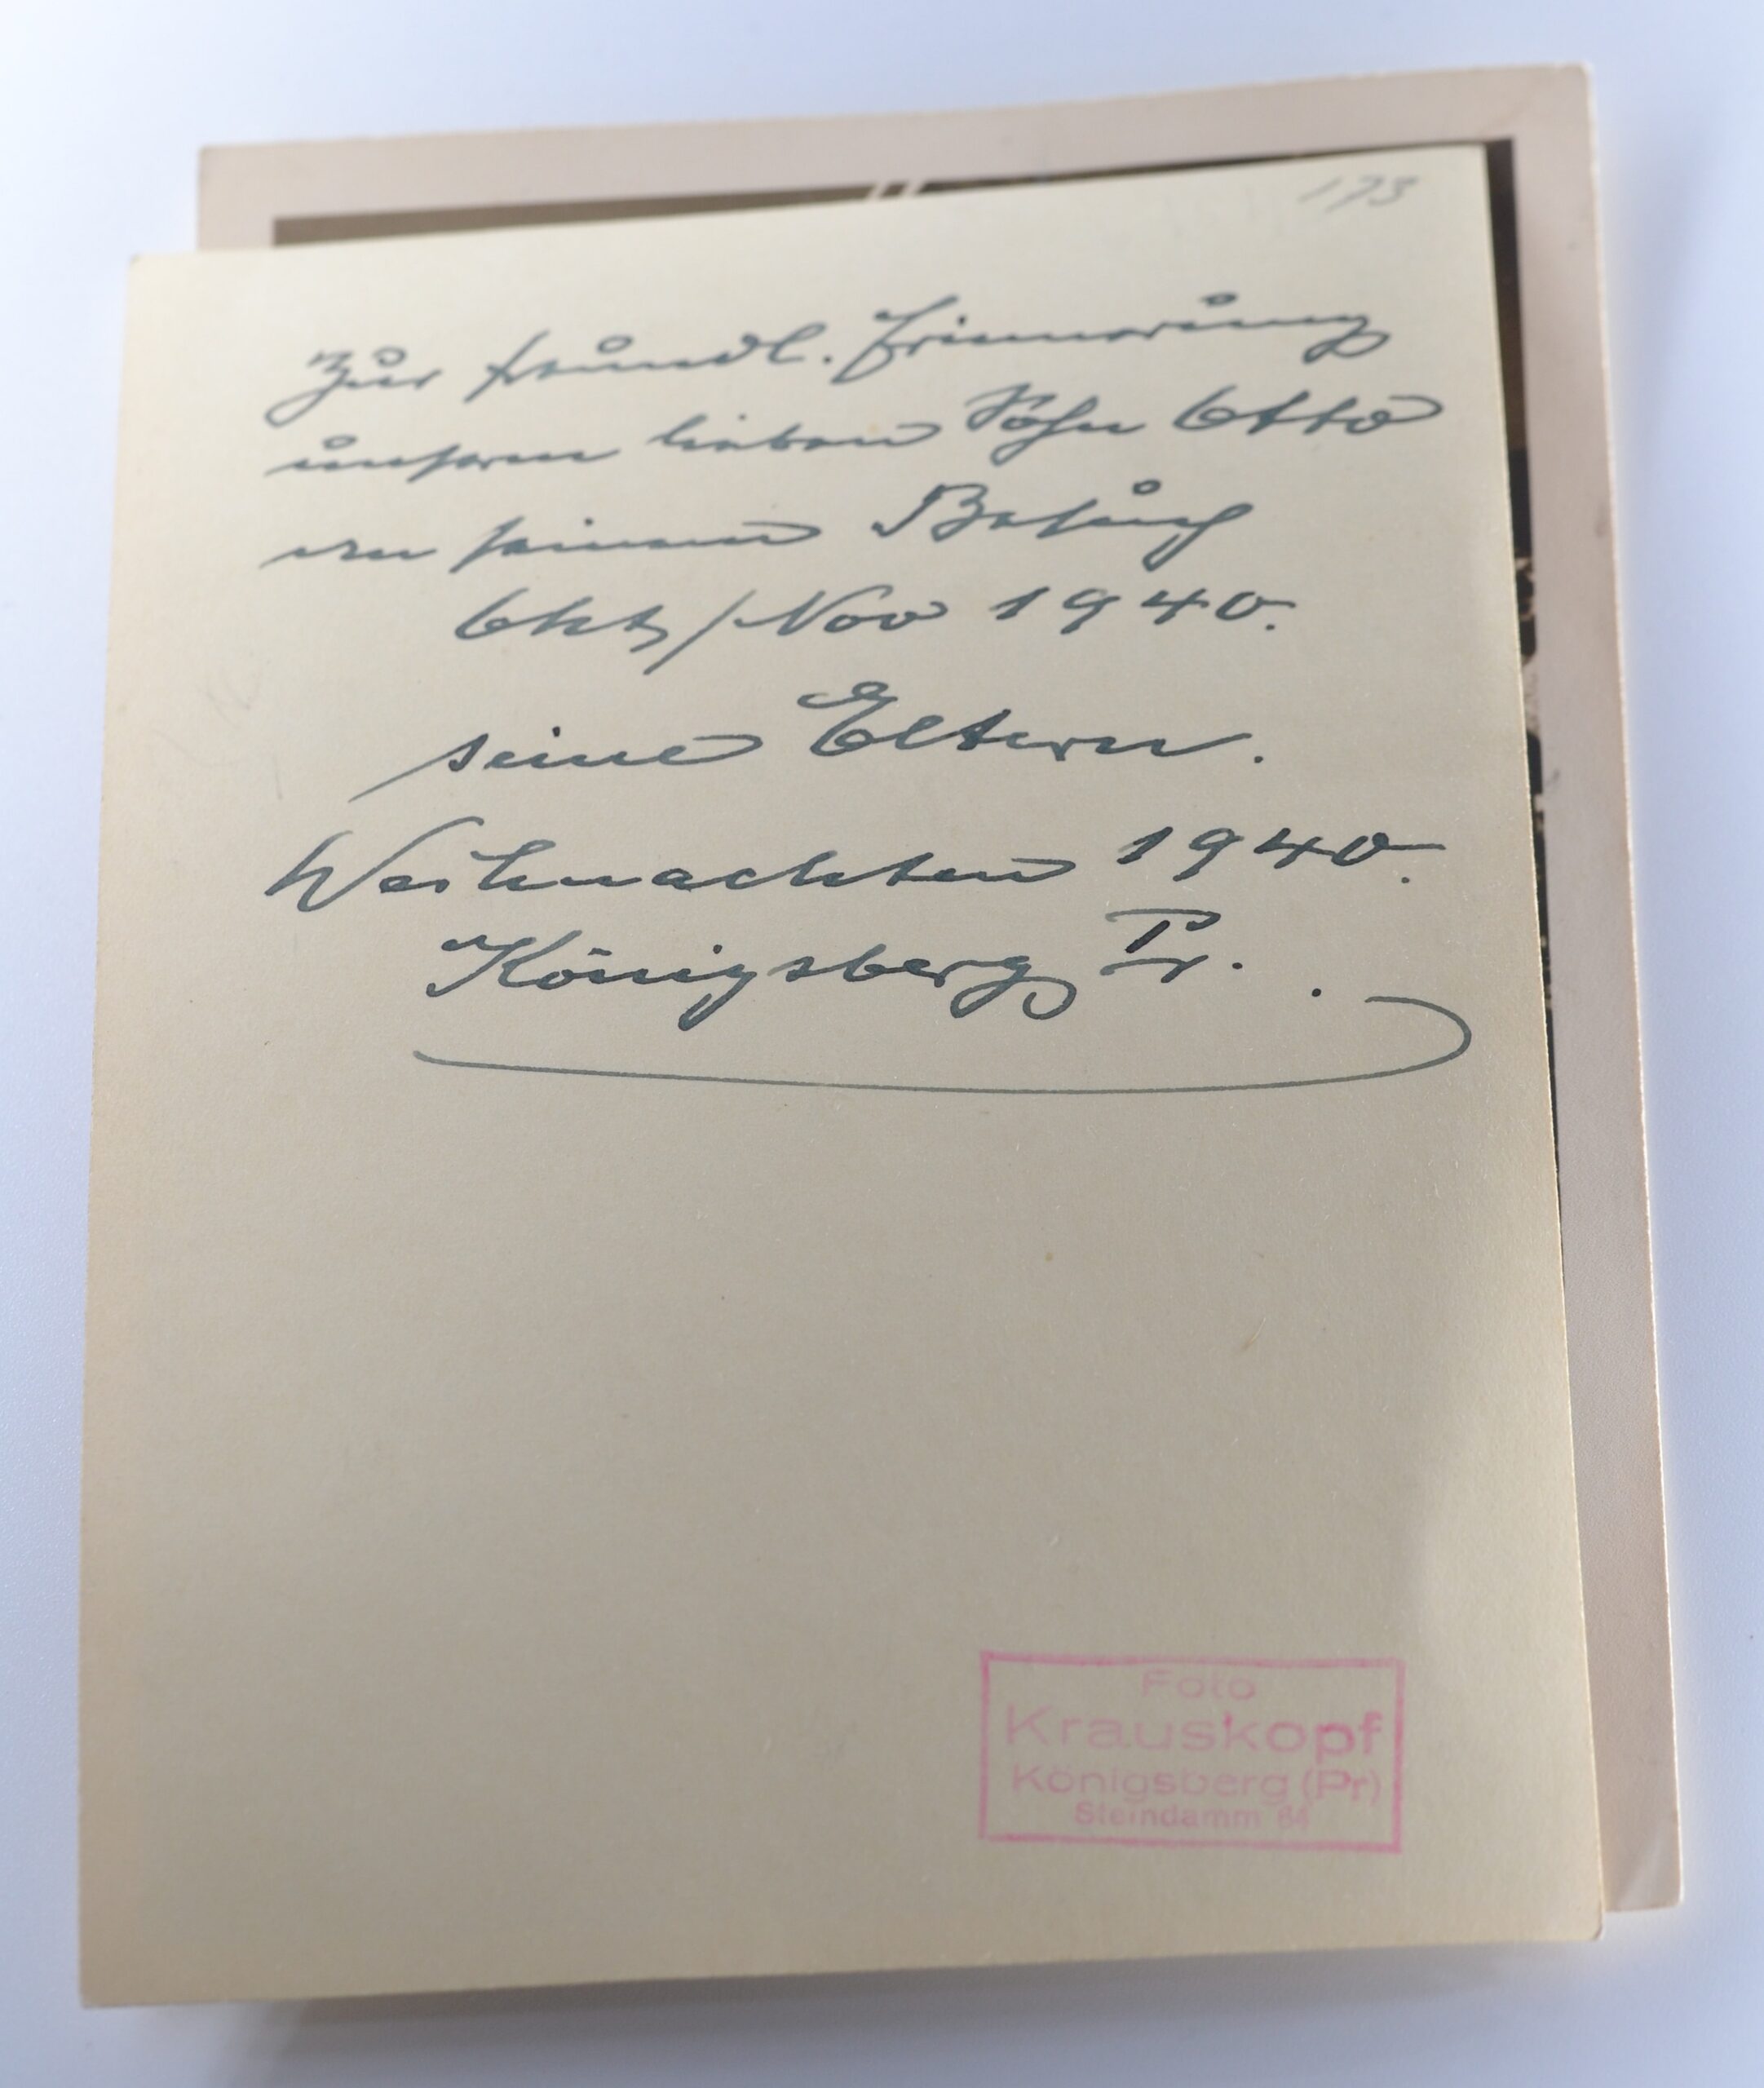 173
Zur freundl. Erinnerung
unserm lieben Sohn Otto
an seinen Besuch
Okt/Nov 1940.
seine Eltern.
Weihnachten 1940.
Königsberg Pr.
Foto
Krauskopf
Königsberg (Pr)
Steindamm 64